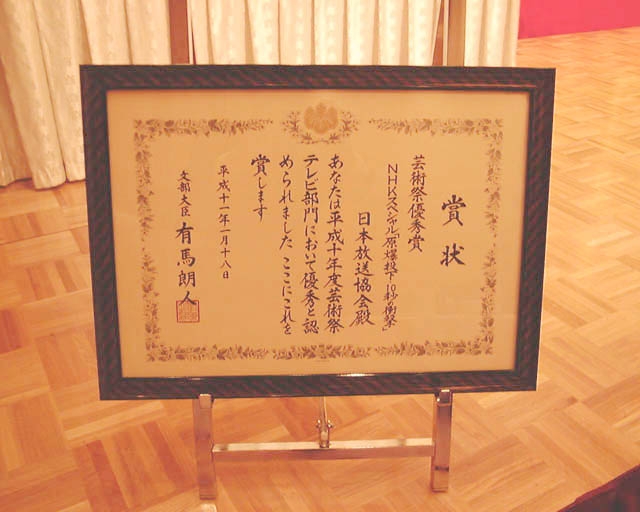 賞状
芸術祭優秀賞
NHKスペシャル「原爆投下・10秒の衝撃」
日本放送協会殿
あなたは平成十年度芸術祭
テレビ部門において優秀と認
められました ここにこれを
賞します
平成十一年一月十八日
文部大臣 有馬朗人